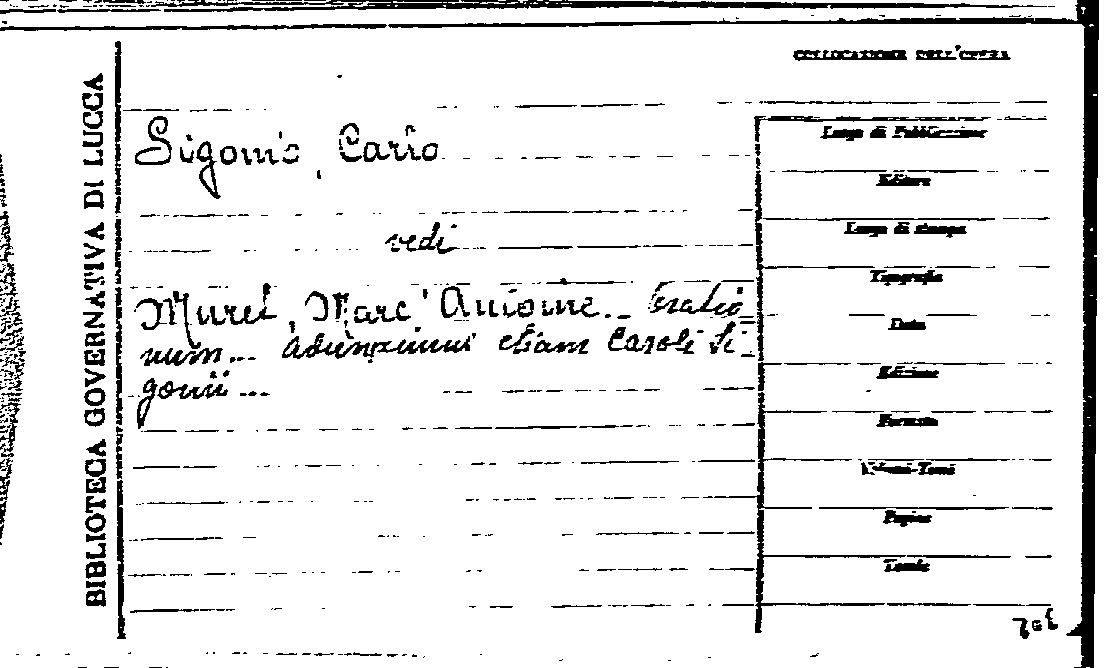 BIBLIOTECA GOVERNATIVA DI LUCCA
COLLOCAZIONE DELL'OPERA
Sigonio, Carlo
vedi
Muret, Marc' Antoine... Oratio=
num... Adiunximus etiam Caroli Si=
gonii...
Luogo di Pubblicazione
Editore
Luogo di stampa
Tipografia
Data
Edizione
Formato
Volumi-Tomi
Pagine
Tavole